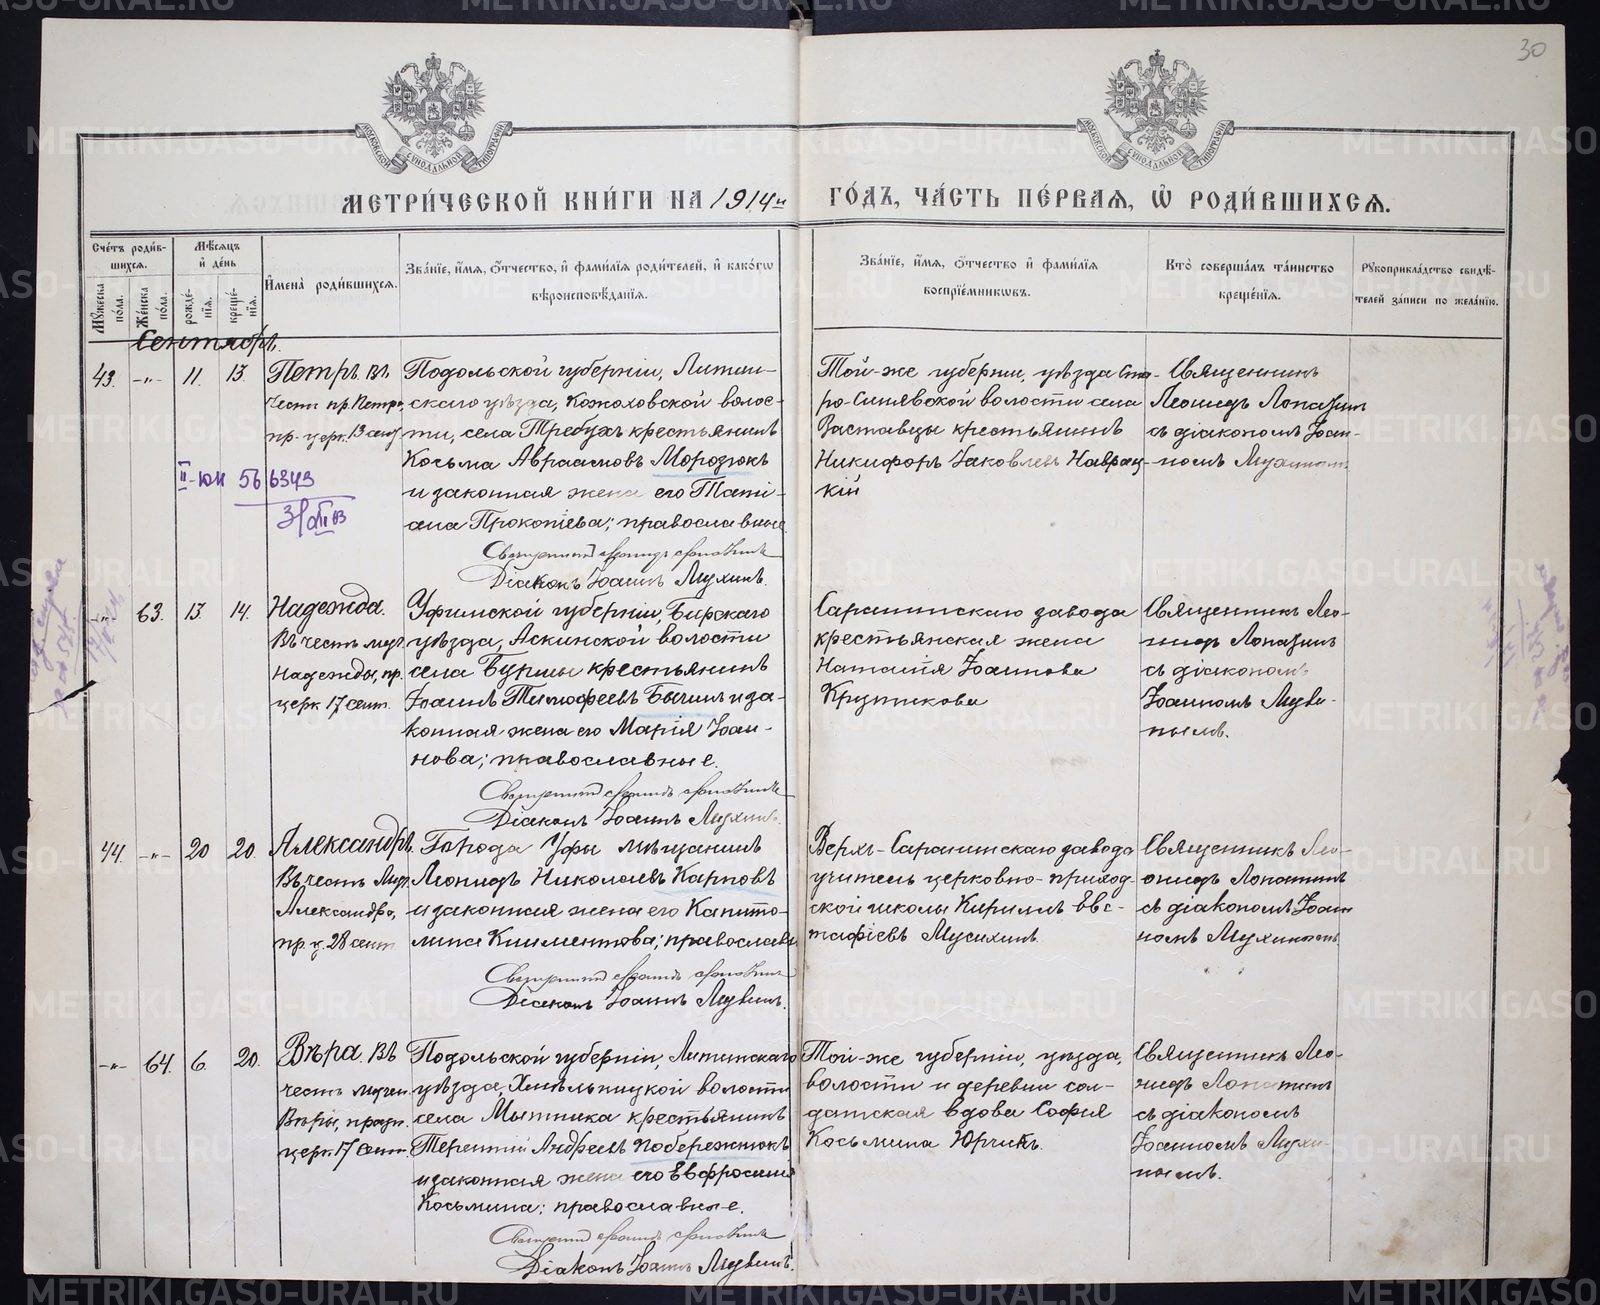 30
МОСКОВСКОЙ СУНОДАЛЬНОЙ ТИПОГРАФІИ
МОСКОВСКОЙ СУНОДАЛЬНОЙ ТИПОГРАФІИ
МЕТРИ́ЧЕСКОЙ КНИ́ГИ НА 1914й ГО́ДЪ, ЧА́СТЬ ПЕ́РВАЯ, Ѽ РОДИ́ВШИХСѦ.
Сче́тъ роди́в-
шихсѧ.
Мꙋ́жеска по́ла.
Же́нска по́ла.
Мѣ́сѧцъ
и҆ де́нь
рожде́-
нїѧ.
креще́-
нїѧ.
И҆мена̀ роди́вшихсѧ.
Зва́нїе, и҆́мѧ, ѻ҆́тчество, и҆ фами́лїѧ роди́телей, и҆ како́гѡ
вѣроисповѣ́данїѧ.
Зва́нїе, и҆́мѧ, ѻ҆́тчество и҆ фами́лїѧ
воспрїе́мникѡвъ.
Кто̀ соверша́лъ та́инство
креще́нїѧ.
Рꙋкоприкла́дство свидѣ́-
телей за́писи по жела́нїю.
Сентябрь.
43. -"- 11. 13.
Петръ. Въ
честь пр. Петра,
пр. церк. 13 сент
Подольской губерніи, Литин-
скаго уѣзда, Кожоховской волос-
ти, села Требухъ крестьянинъ
Косьма Авраамовъ Морозюкъ
и законная жена его Тати-
ана Прокопіева; православные
Священникъ Леонидъ Лопатинъ
Діаконъ Іоаннъ Мухинъ.
Той-же губерніи, уѣзда Ста-
ро-Синявской волости села
Заставцы крестьянинъ
Никифоръ Іаковлевъ Навроц-
кій
Священникъ
Леонидъ Лопатинъ
съ діакономъ Іоан-
номъ Мухинымъ
II-ЮИ 56 6343
-"- 63. 13. 14.
Надежда.
Въ честь муч.
Надежды, пр.
церк. 17 сент.
Уфимской губерніи, Бирскаго
уѣзда, Аскинской волости
села Бурмы крестьянинъ
Іоаннъ Тимофеевъ Бычинъ и за-
конная жена его Марія Іоан-
нова; православные.
Священникъ Леонидъ Лопатинъ
Діаконъ Іоаннъ Мухинъ.
Саранинскаго завода
крестьянская жена
Наталія Іоаннова
Крутикова
Священникъ Лео-
нидъ Лопатинъ
съ діакономъ
Іоанномъ Мухи-
нымъ.
44. -"- 20 20.
Александръ.
Въ честь Муч.
Александра,
пр. ц. 28 сент
Города Уфы мѣщанинъ
Леонидъ Николаевъ Карповъ
и законная жена его Капито-
лина Климентова; православн
Священникъ Леонидъ Лопатинъ
Діаконъ Іоаннъ Мухинъ.
Верхъ-Саранинскаго завода
учитель церковно-приход-
ской школы Кириллъ Евс-
тафіевъ Мусихинъ.
Священникъ Лео-
онидъ Лопатинъ
съ діакономъ Іоан
номъ Мухинымъ.
-"- 64. 6. 20.
Вѣра. Въ
честь мучен.
Вѣры, праздн.
церк. 17 сент.
Подольской губерніи, Литинскаго
уѣзда, Хмѣльницкой волости
села Мытника крестьянинъ
Терентій Андреевъ Побережнюкъ
и законная жена его Евфросинія
Косьмина; православные.
Священникъ Леонидъ Лопатинъ
Діаконъ Іоаннъ Мухинъ.
Той-же губерніи, уѣзда,
волости и деревни сол-
датская вдова Софія
Косьмина Юрчикъ.
Священникъ Лео-
нидъ Лопатинъ
съ діакономъ
Іоанномъ Мухи-
нымъ.
METRIKI.GASO-URAL.RU